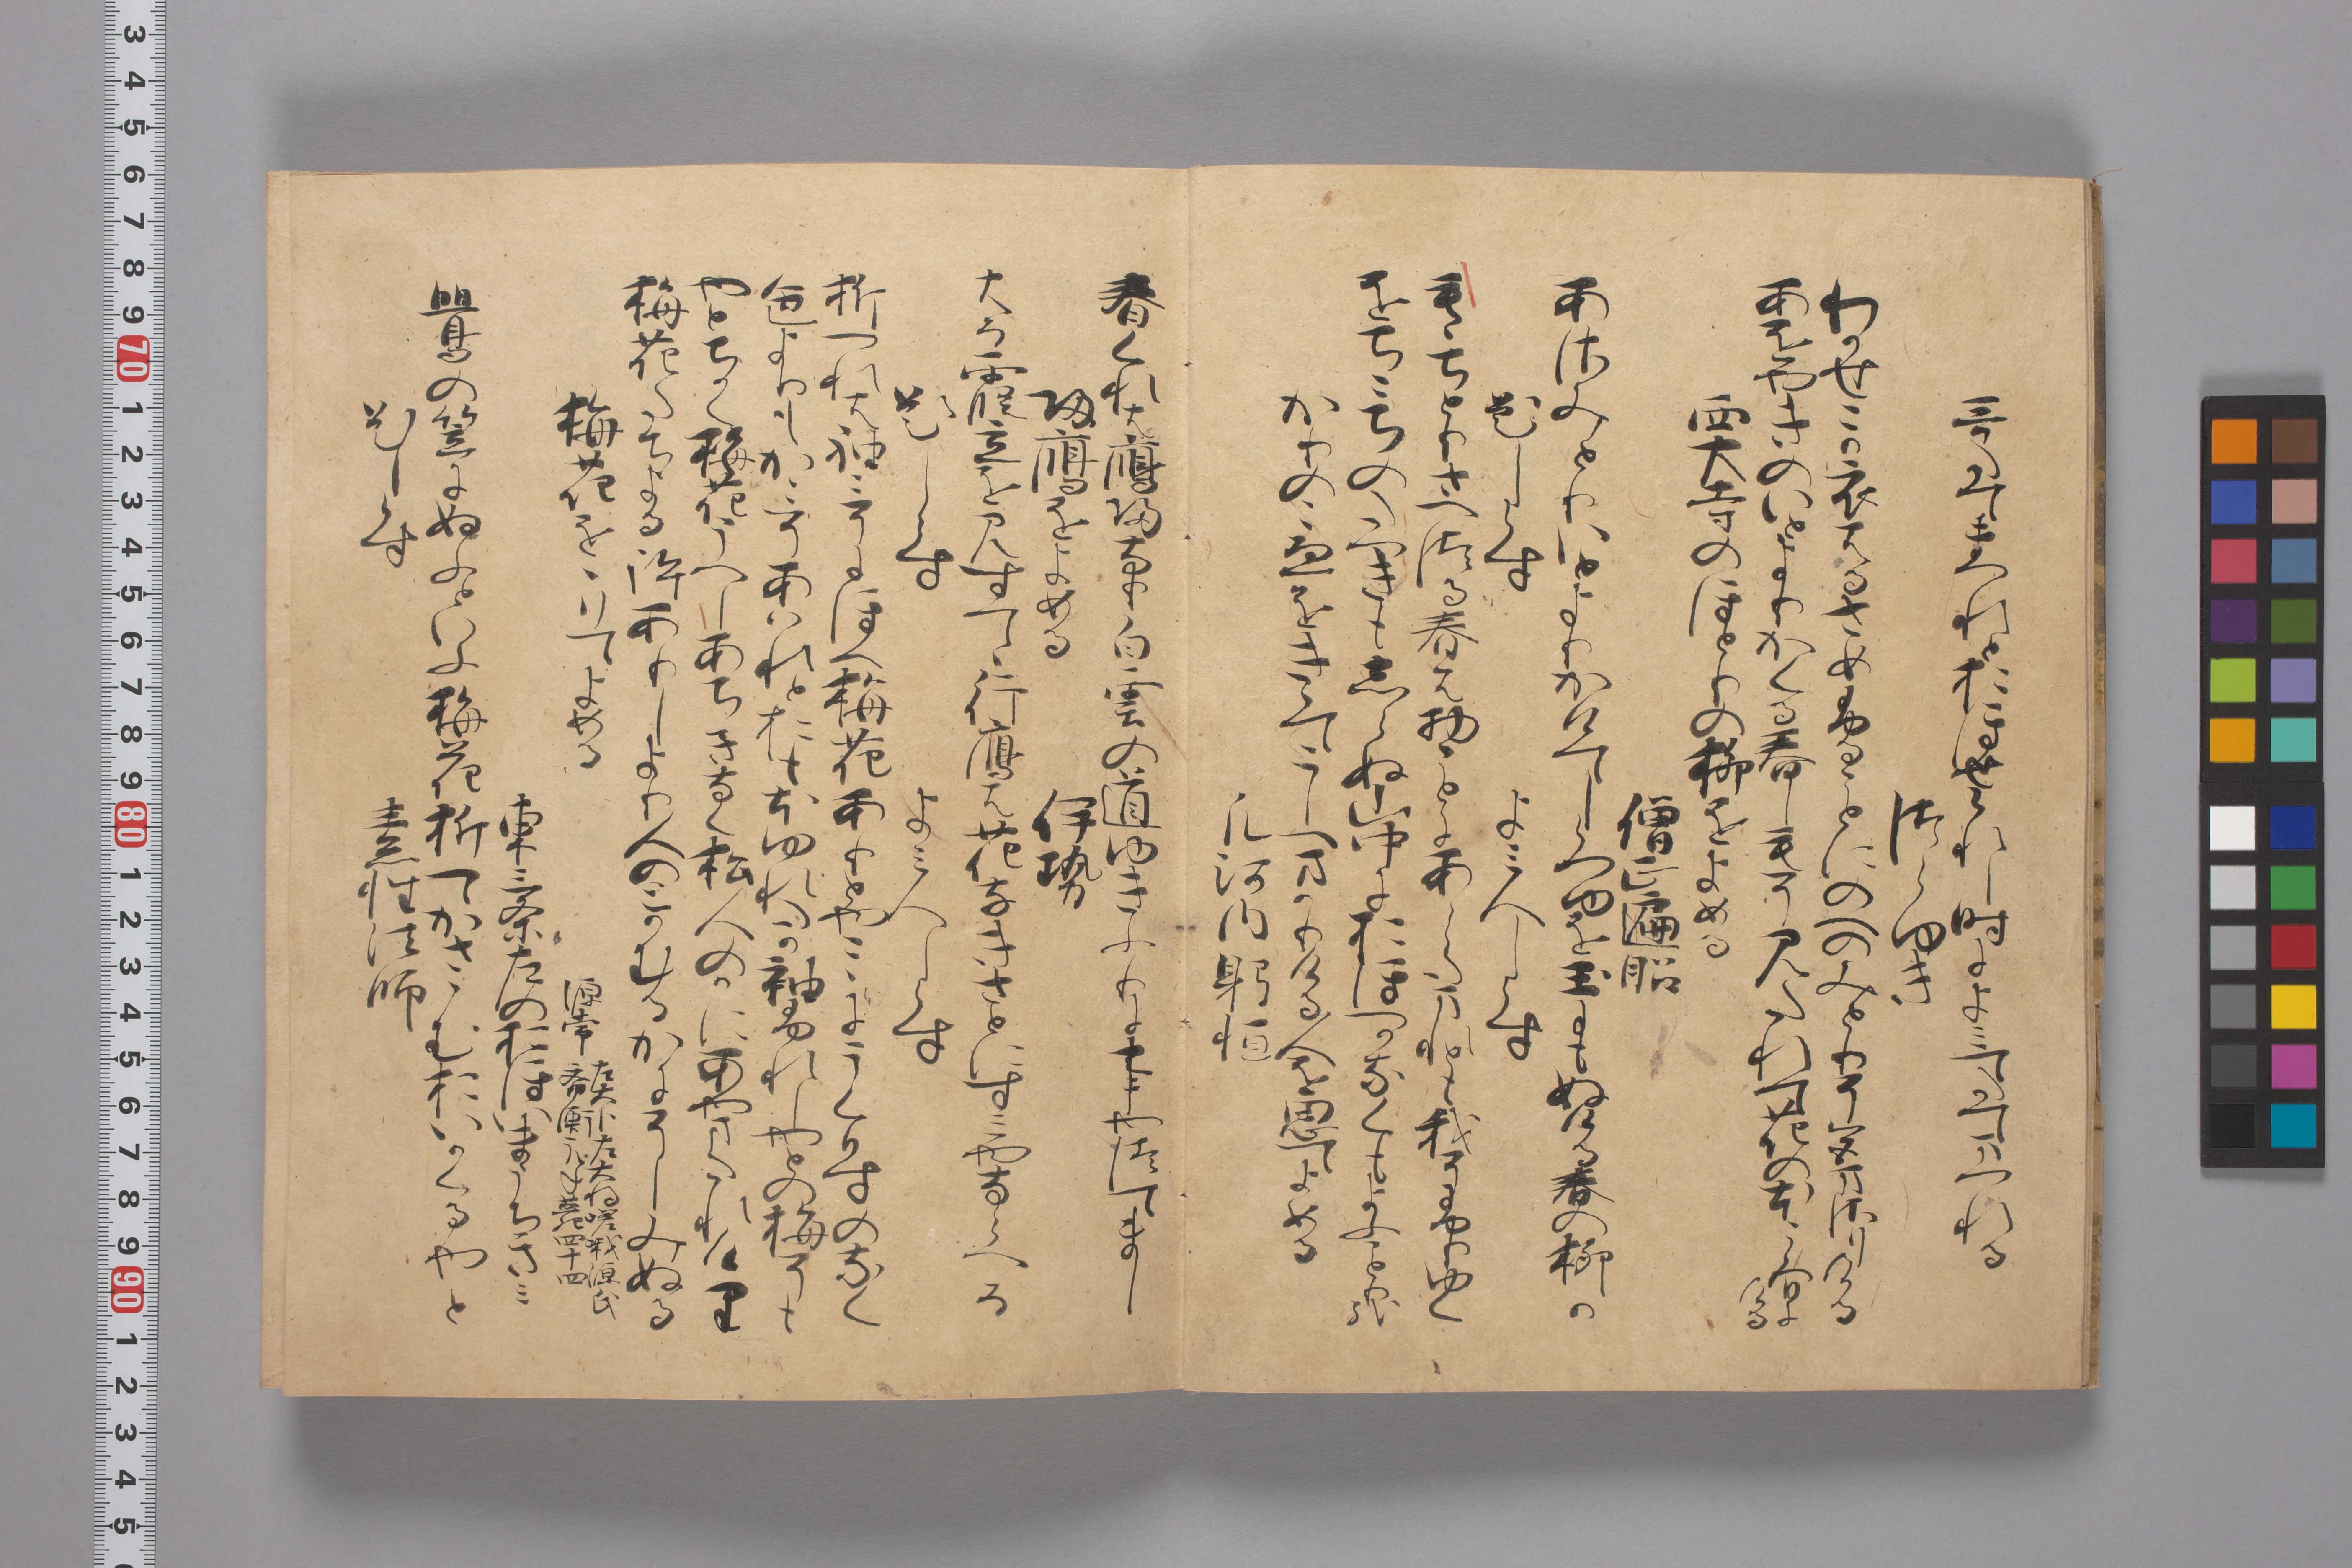 哥たてまつれとおほせられし時によみてたてまつれる
つらゆき
わかせこか衣はるさめふることにのへのみとりそ色まさりける
あをやきのいとよりかくる春しもそみたれて花のほころひにける
西大寺のほとりの柳をよめる
僧正遍昭
あさみとりいとよりかけてしらつゆを玉にもぬける春の柳か
題しらす　よみ人しらす
もゝちとりさへつる春は物ことにあらたまれとも我そふりゆく
をちこちのたつきもしらぬ山中におほつかなくもよふことり哉
かりのこゑをきゝてこしへまかりける人を思てよめる
凡河内躬恒
春くれは鴈帰なり白雲の道ゆきふりにことやつてまし
帰鴈をよめる　伊勢
はる霞立を見すてゝ行鴈は花なきさとにすみやならへる
題しらす　よみ人しらす
折つれは袖こそにほへ梅花ありとやこゝにうくひすのなく
色よりもかこそあはれとおもほゆれたか袖ふれしやとの梅そも
やとちかく梅花うへしあちきなく松人のかにあやまたれけり
梅花たちよる許ありしより人のとかむるかにそしみぬる
梅花をゝりてよめる
源常　左大臣左大将嵯峨源氏
斉衡元年薨四十四
東三条左のおほいまうちきみ
鴬の笠にぬふといふ梅花折てかさゝむおいかくるやと
題しらす　素性法師